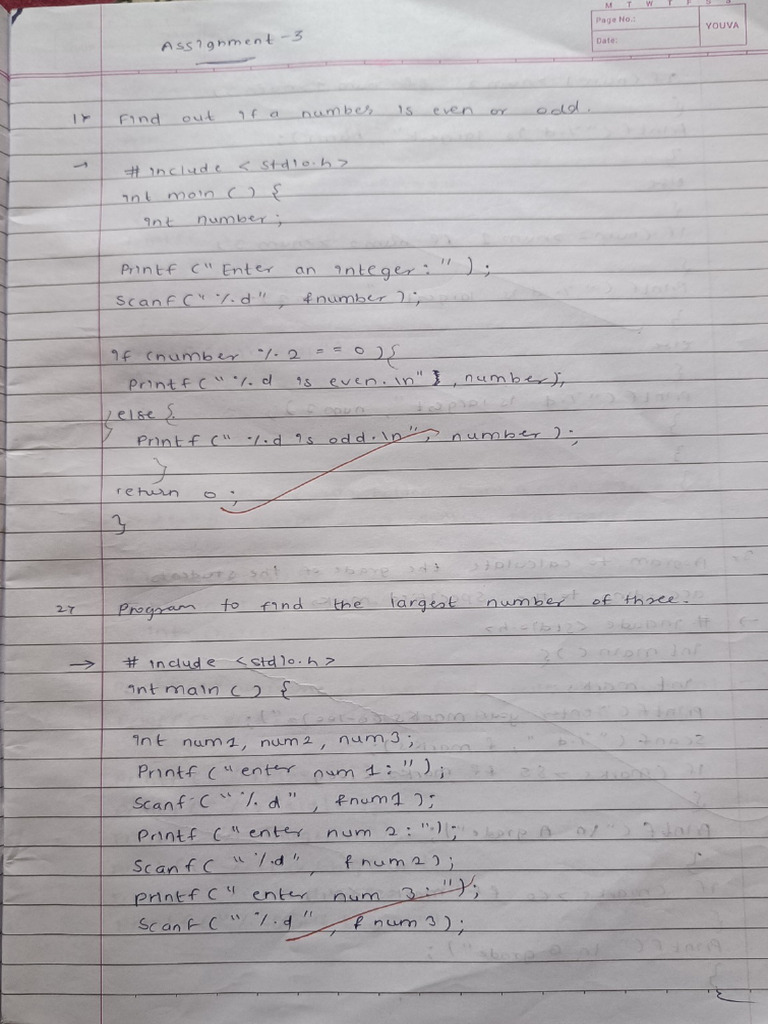 M T W T F S S
Page No.:
YOUVA
Date:
Assignment - 3
1) Find out if a number is even or odd.
→ # include < stdio.h>
int main ( ) {
int number;
Printf ("Enter an integer : " ) ;
Scanf ( " %d" , &number ) ;
if (number % 2 = = 0 ) {
Printf ( " %d is even. \n" , number);
} else {
Printf ( " %d is odd. \n" , number ) ;
}
return 0 ;
}
2) Program to find the largest number of three.
→ # include <stdio.h>
int main ( ) {
int num1, num2, num3;
Printf ( " enter num 1 : " ) ;
Scanf ( " %d" , &num1 ) ;
Printf ( " enter num 2 : " ) ;
Scanf ( " %d" , &num2 ) ;
printf ( " enter num 3 : " ) ;
Scanf ( " %d " , &num3 ) ;